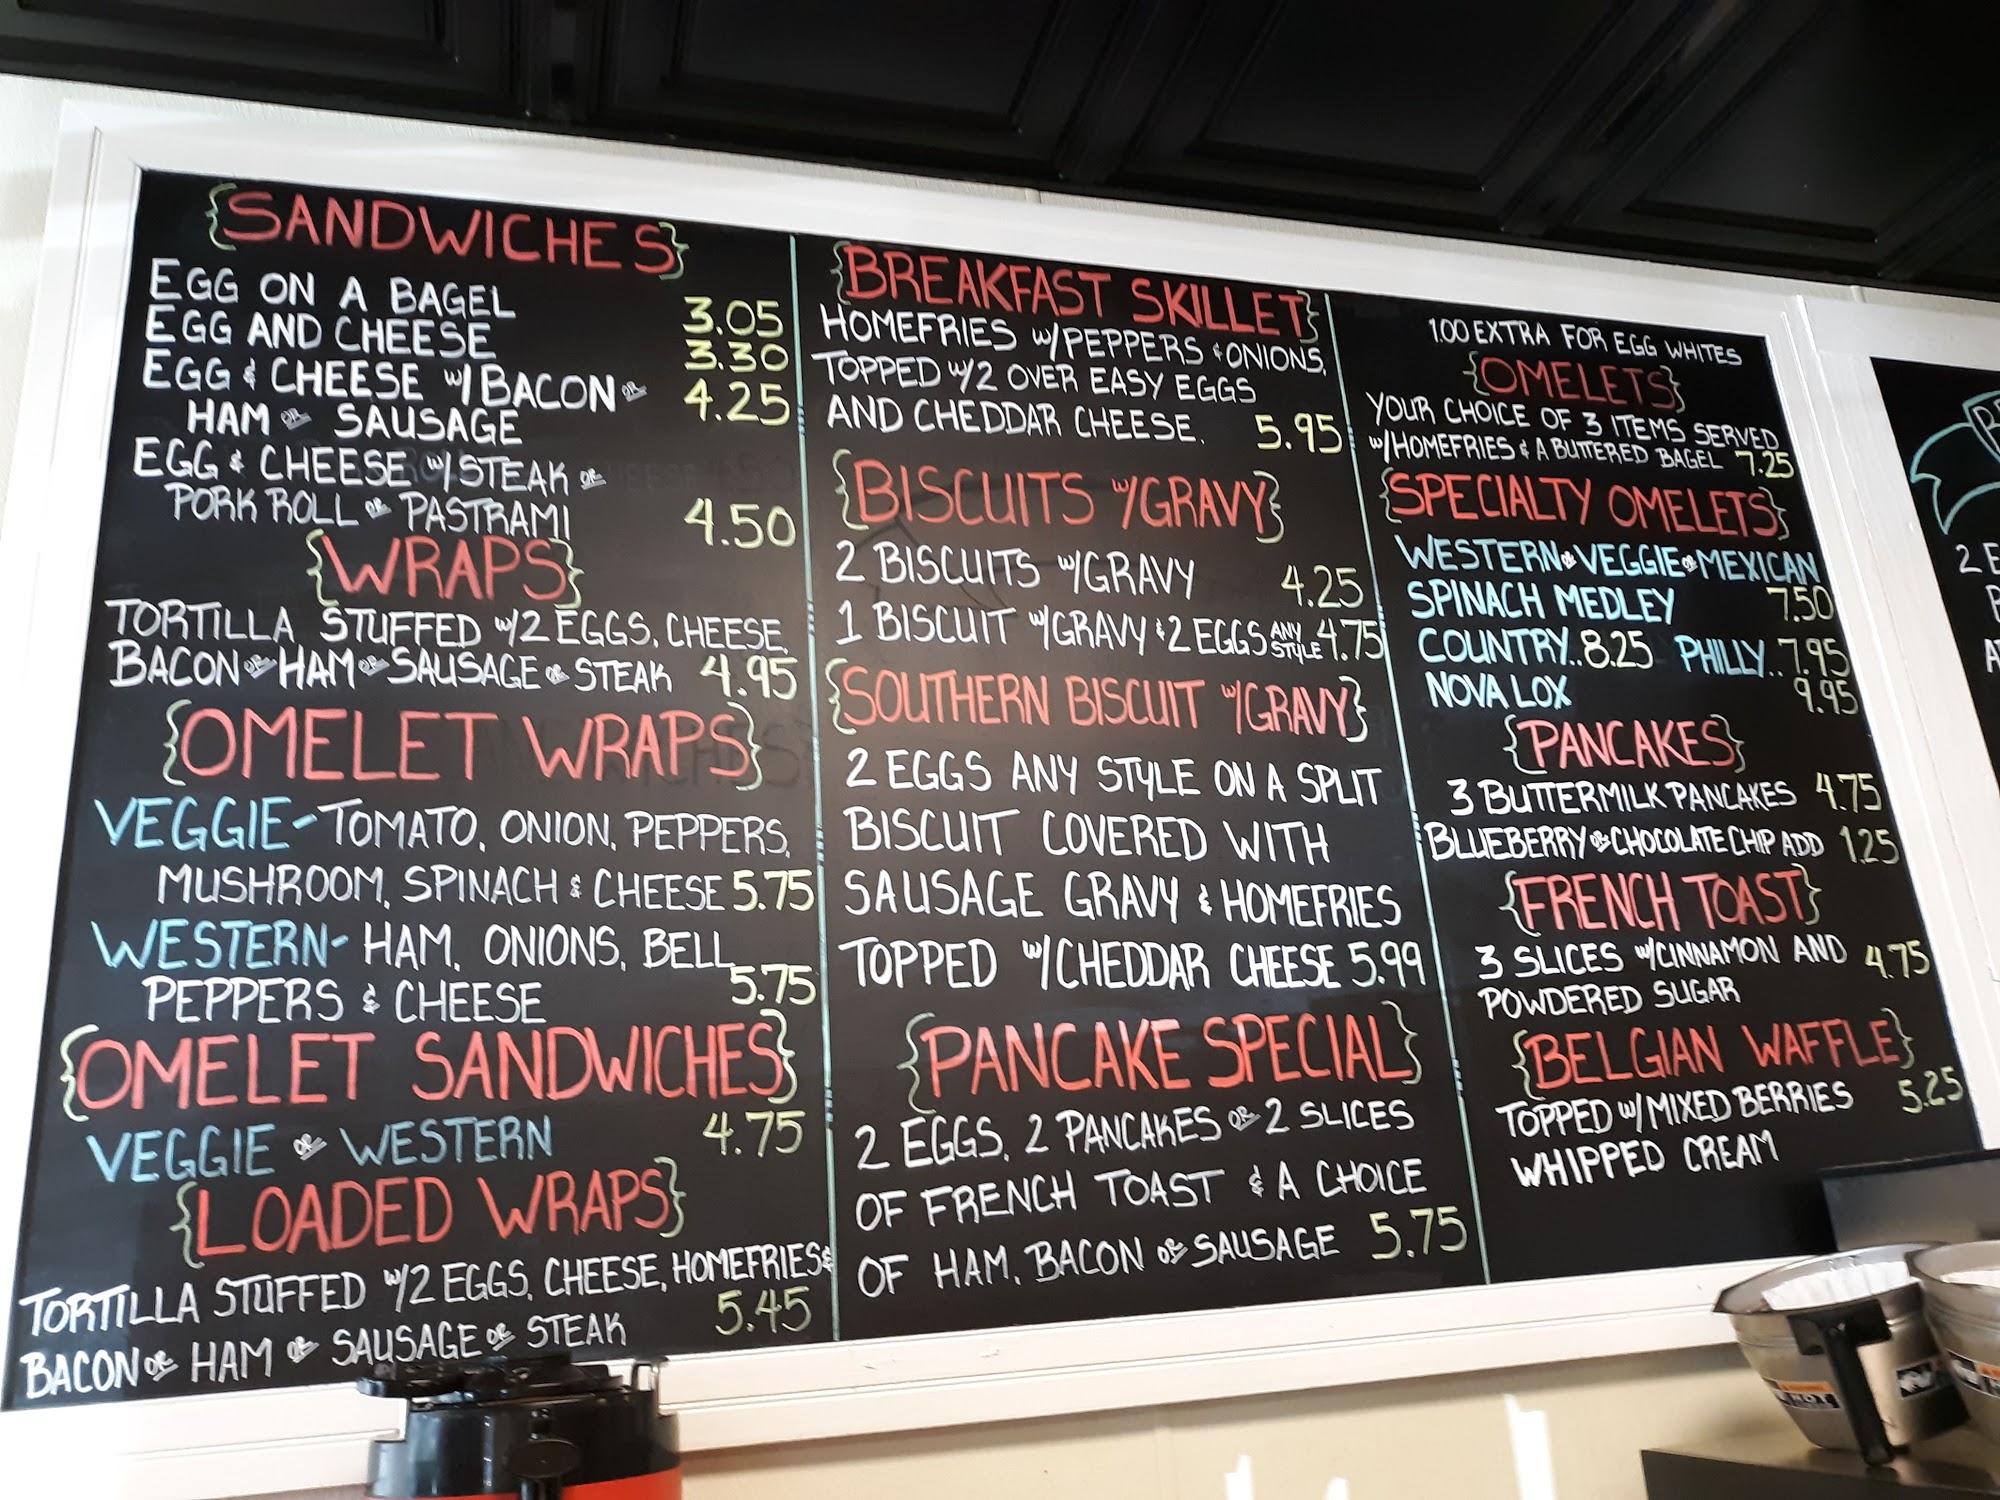 {SANDWICHES}
EGG ON A BAGEL 3.05
EGG AND CHEESE 3.30
EGG & CHEESE w/ BACON OR 4.25
HAM OR SAUSAGE
EGG & CHEESE w/STEAK OR
PORK ROLL OR PASTRAMI 4.50
{WRAPS}
TORTILLA STUFFED w/2 EGGS, CHEESE,
BACON OR HAM OR SAUSAGE OR STEAK 4.95
{OMELET WRAPS}
VEGGIE-TOMATO, ONION, PEPPERS,
MUSHROOM, SPINACH & CHEESE 5.75
WESTERN- HAM, ONIONS, BELL
PEPPERS & CHEESE 5.75
{OMELET SANDWICHES}
VEGGIE OR WESTERN 4.75
{LOADED WRAPS}
TORTILLA STUFFED w/2 EGGS, CHEESE, HOMEFRIES &
BACON OR HAM OR SAUSAGE OR STEAK 5.45
{BREAKFAST SKILLET}
HOMEFRIES w/PEPPERS & ONIONS,
TOPPED w/2 OVER EASY EGGS
AND CHEDDAR CHEESE. 5.95
{BISCUITS w/GRAVY}
2 BISCUITS w/GRAVY 4.25
1 BISCUIT w/GRAVY & 2 EGGS ANY STYLE 4.75
{SOUTHERN BISCUIT w/GRAVY}
2 EGGS ANY STYLE ON A SPLIT
BISCUIT COVERED WITH
SAUSAGE GRAVY & HOMEFRIES
TOPPED w/CHEDDAR CHEESE 5.99
{PANCAKE SPECIAL}
2 EGGS, 2 PANCAKES OR 2 SLICES
OF FRENCH TOAST & A CHOICE
OF HAM, BACON OR SAUSAGE 5.75
1.00 EXTRA FOR EGG WHITES
{OMELETS}
YOUR CHOICE OF 3 ITEMS SERVED
w/HOMEFRIES & A BUTTERED BAGEL 7.25
{SPECIALTY OMELETS}
WESTERN OR VEGGIE OR MEXICAN
SPINACH MEDLEY 7.50
COUNTRY..8.25 PHILLY..7.95
NOVA LOX 9.95
{PANCAKES}
3 BUTTERMILK PANCAKES 4.75
BLUEBERRY OR CHOCOLATE CHIP ADD 1.25
{FRENCH TOAST}
3 SLICES w/CINNAMON AND 4.75
POWDERED SUGAR
{BELGIAN WAFFLE}
TOPPED w/MIXED BERRIES 5.25
WHIPPED CREAM
2 E